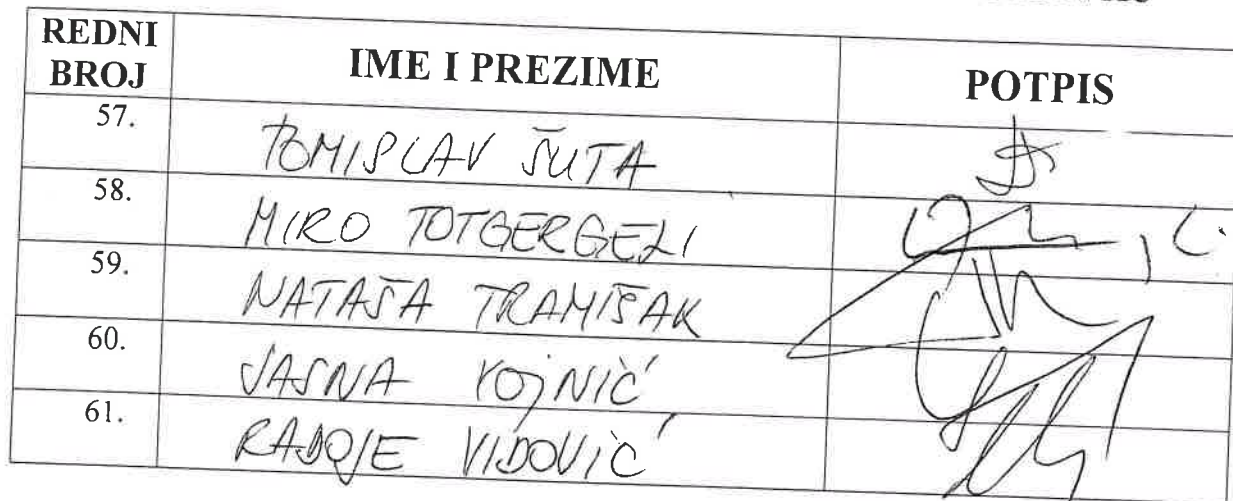 REDNI BROJ IME I PREZIME POTPIS
57. TOMISLAV ŠUTA
58. MIRO TOTGERGELI
59. NATAŠA TRAMIŠAK
60. JASNA VOJNIĆ
61. RADOJE VIDOVIĆ